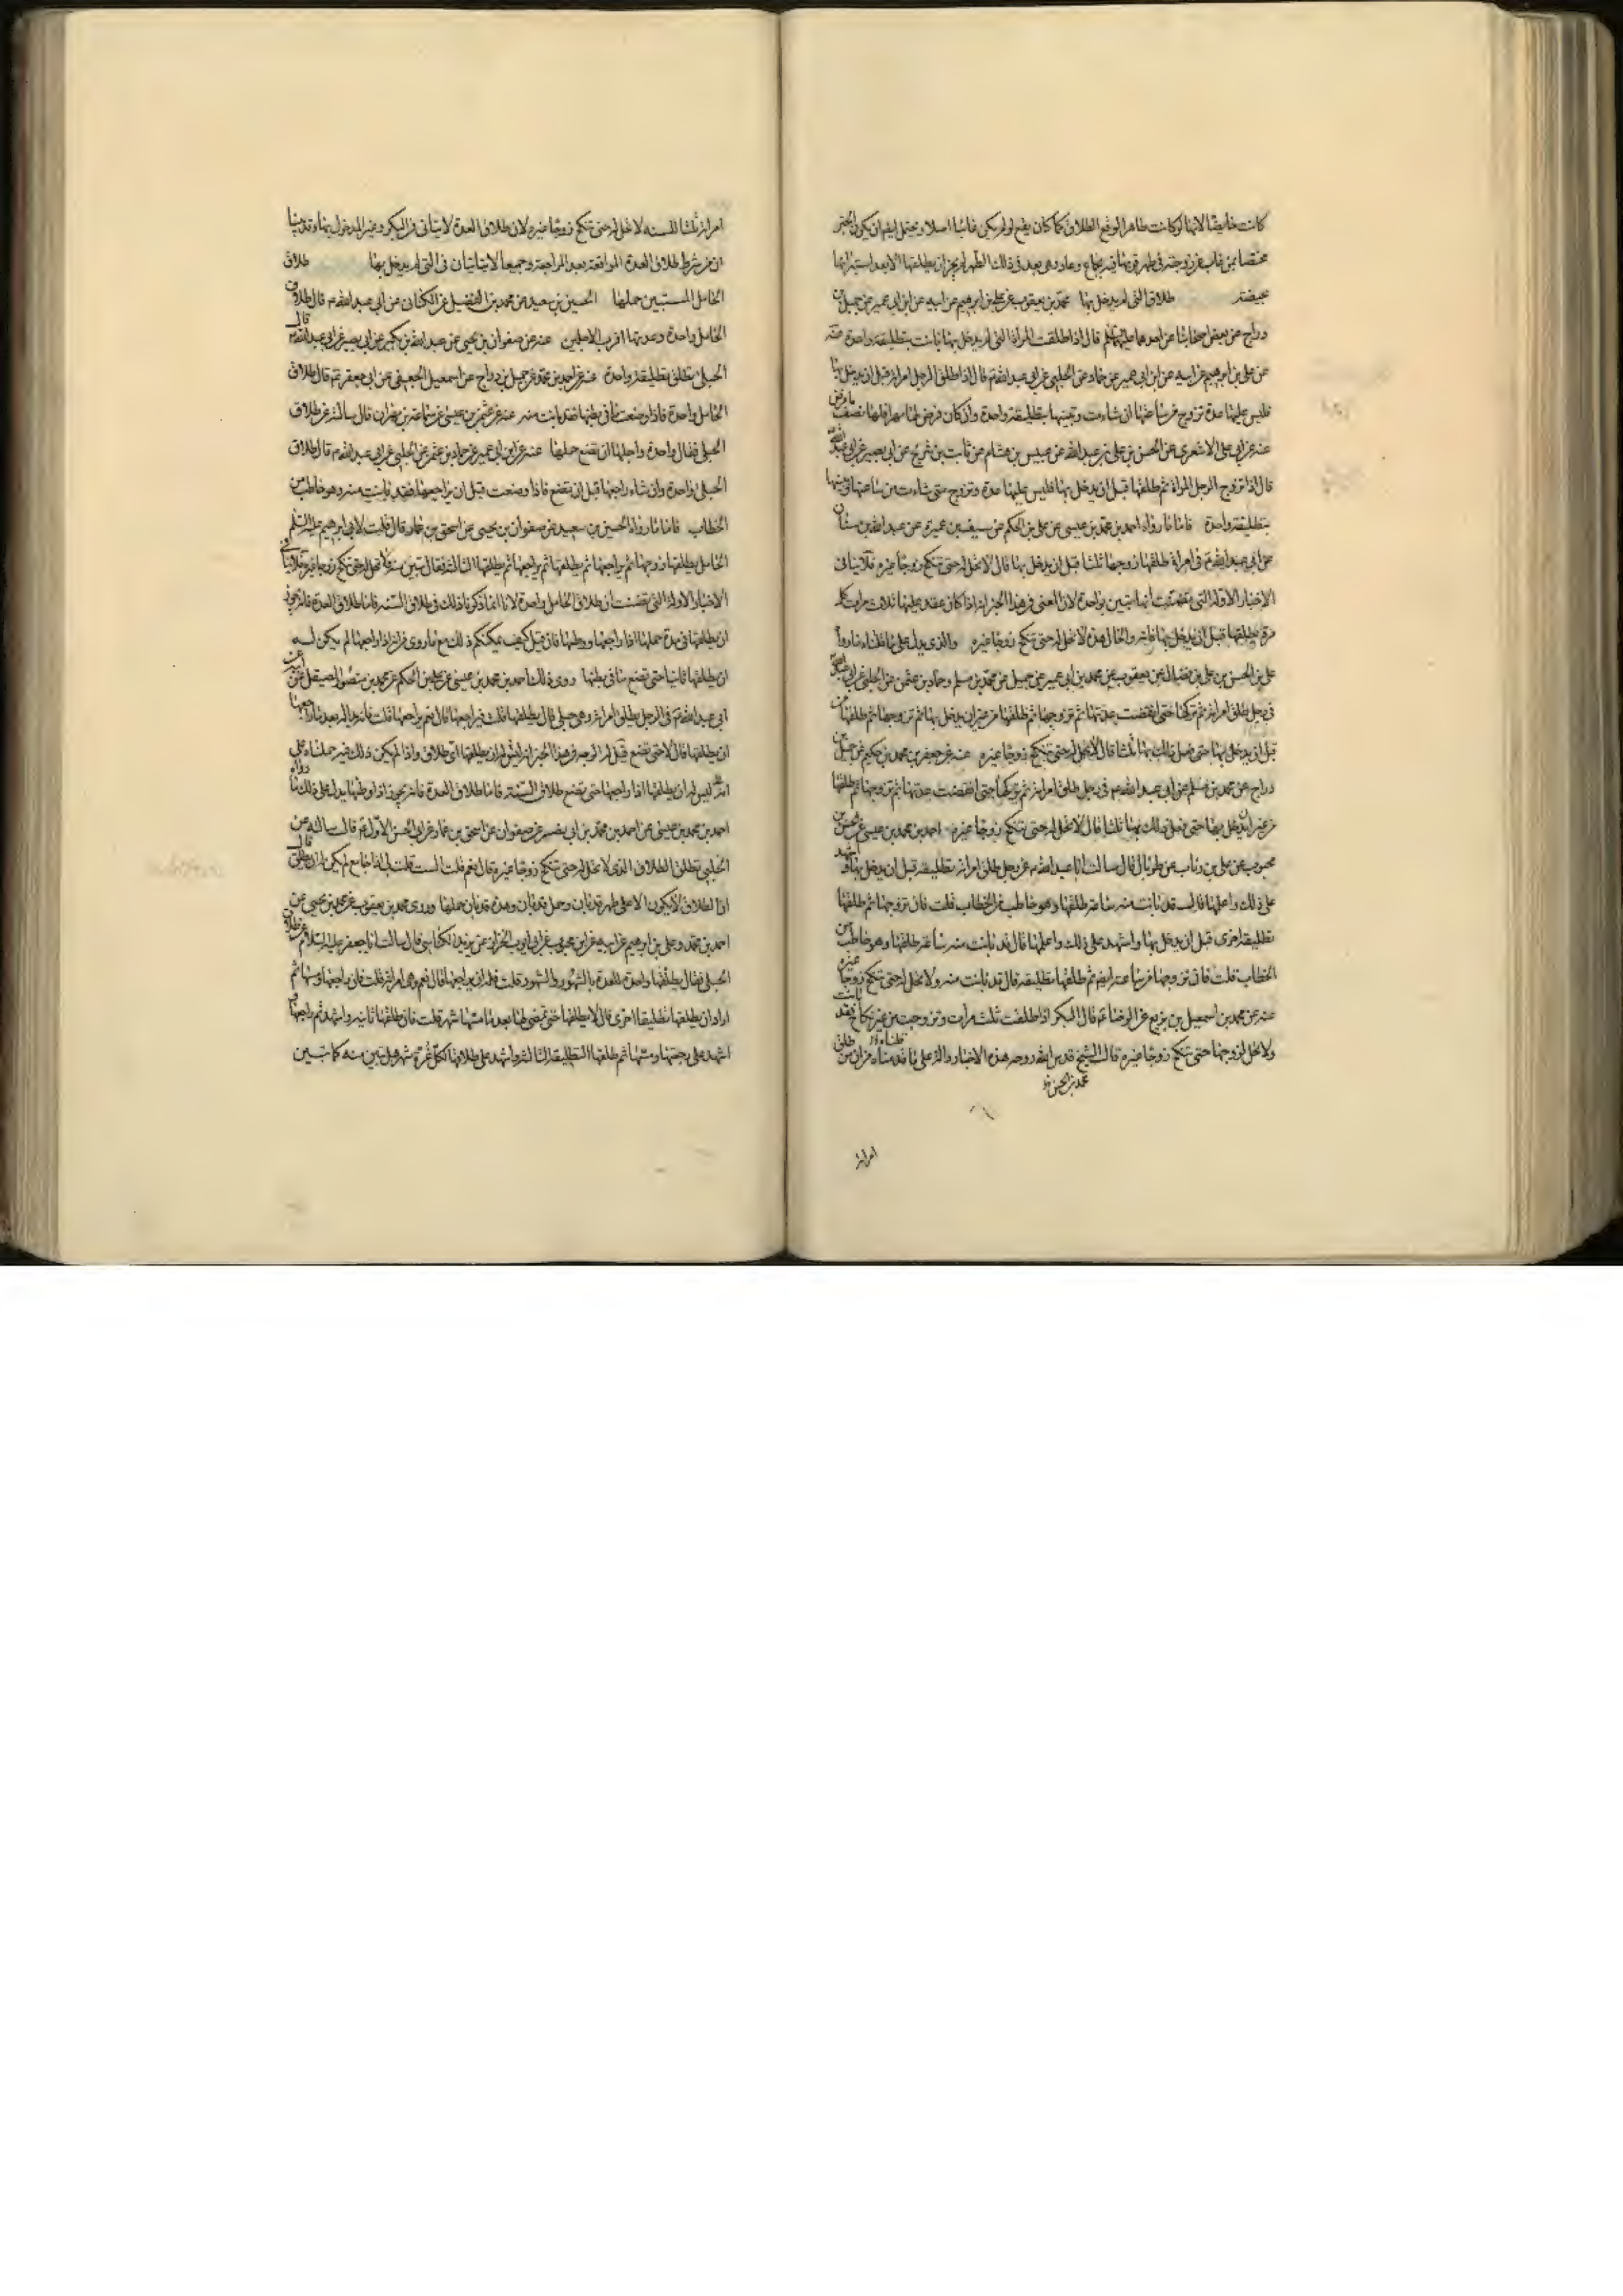 كانت حايضا لانها لو كانت طاهرا لوقع الطلاق كما كان يقع لو لم يكن غائبا اصلا ويحتمل ايضا ان يكون الخبر
مختصا بمن غاب عن زوجته في طهر قربها فيه بجماع وعاد وهي بعد في ذلك الطهر لم يجز ان يطلقها الا بعد استبرائها
بحيضة طلاق التي لم يدخل بها محمد بن يعقوب عن علي بن ابرهيم عن ابيه عن ابن ابي عمير عن جميل بن
دراج عن بعض اصحابنا عن احدهما عليهما السلم قال اذا طلقت المراة التي لم يدخل بها بانت بتطليقة واحدة عنه
عن علي بن ابرهيم عن ابيه عن ابن ابي عمير عن حماد عن الحلبي عن ابي عبد الله ع قال اذا طلق الرجل امراته قبل ان يدخل بها
فليس عليها عدة تزوج من ساعتها ان شاءت وتبينها بتطليقة واحدة وان كان فرض لها مهرا فلها نصف ما فرض
عنه عن ابي علي الاشعري عن الحسن بن علي بن عبد الله عن عبيس بن هشام عن ثابت بن شريح عن ابي بصير عن ابي عبد الله ع
قال اذا تزوج الرجل المراة ثم طلقها قبل ان يدخل بها فليس عليها عدة وتزوج متى شاءت من ساعتها وتبينها
بتطليقة واحدة فاما ما رواه احمد بن محمد بن عيسى عن علي بن الحكم عن سيف بن عميرة عن عبد الله بن سنان
عن ابي عبد الله ع في امراة طلقها زوجها ثلثا قبل ان يدخل بها قال لا تحل له حتى تنكح زوجا غيره فلا ينافي
الاخبار الاولة التي تضمنت انها تبين بواحدة لان المعنى في هذا الخبر انه اذا كان عقد عليها ثلاث مرات كل
مرة يطلقها قبل ان يدخل بها فانه والحال هذه لا تحل له حتى تنكح زوجا غيره والذي يدل على ما قلناه ما رواه
علي بن الحسن بن علي بن فضال عن يعقوب عن محمد بن ابي عمير عن جميل عن محمد بن مسلم وحماد بن عثمن عن الحلبي عن ابي عبد الله
في رجل طلق امراته ثم تركها حتى انقضت عدتها ثم تزوجها ثم طلقها من غير ان يدخل بها ثم تزوجها ثم طلقها من
قبل ان يدخل بها حتى فعل ذلك بها ثلثا قال لا تحل له حتى تنكح زوجا غيره عنه عن جعفر بن محمد بن حكيم عن جميل بن
دراج عن محمد بن مسلم عن ابي عبد الله ع في رجل طلق امراته ثم تركها حتى انقضت عدتها ثم تزوجها ثم طلقها
من غير ان يدخل بها حتى فعل ذلك بها ثلثا قال لا تحل له حتى تنكح زوجا غيره احمد بن محمد بن عيسى عن الحسن بن
محبوب عن علي بن رئاب عن طربال قال سالت ابا عبد الله ع عن رجل طلق امراته تطليقة قبل ان يدخل بها واشهد
على ذلك واعلمها قال قد بانت منه ساعة طلقها وهو خاطب من الخطاب قلت فان تزوجها ثم طلقها
تطليقة اخرى قبل ان يدخل بها واشهد على ذلك واعلمها قال قد بانت منه ساعة طلقها وهو خاطب من
الخطاب قلت فان تزوجها من ساعته ايضا ثم طلقها تطليقة قال قد بانت منه ولا تحل له حتى تنكح زوجا غيره
عنه عن محمد بن اسمعيل بن بزيع عن الرضا ع قال البكر اذا طلقت ثلث مرات وتزوجت من غير نكاح فقد بانت
ولا تحل لزوجها حتى تنكح زوجا غيره قال الشيخ قدس الله روحه هذه الاخبار دالة على ما قدمناه من ان من طلق
محمد بن الحسن
امراته
امراته ثلثا للسنه لا تحل له حتى تنكح زوجا غيره لان طلاق العدة لا يتاتى في البكر وغير المدخول بها وقد بينا
ان من شرط طلاق العدة المواقعة بعد المراجعة وجميعا لا يتاتيان في التي لم يدخل بها طلاق
الحامل المستبين حملها الحسين بن سعيد عن محمد بن الفضيل عن الكناني عن ابي عبد الله ع قال طلاق
الحامل واحدة وعدتها اقرب الاجلين عنه عن صفوان بن يحيى عن عبد الله بن بكير عن ابي بصير عن ابي عبد الله ع قال
الحبلى تطلق تطليقة واحدة عنه عن احمد بن محمد عن جميل بن دراج عن اسمعيل الجعفي عن ابي جعفر ع قال طلاق
الحامل واحدة فاذا وضعت ما في بطنها فقد بانت منه عنه عن عثمن بن عيسى عن سماعة بن مهران قال سالته عن طلاق
الحبلى فقال واحدة واجلها ان تضع حملها عنه عن ابن ابي عمير عن حماد بن عثمن عن الحلبي عن ابي عبد الله ع قال طلاق
الحبلى واحدة وان شاء راجعها قبل ان تضع فاذا وضعت قبل ان يراجعها فقد بانت منه وهو خاطب من
الخطاب فاما ما رواه الحسين بن سعيد عن صفوان بن يحيى عن اسحق بن عمار قال قلت لابي ابرهيم عليه السلم
الحامل يطلقها زوجها ثم يراجعها ثم يطلقها ثم يراجعها ثم يطلقها الثالثة فقال تبين منه ولا تحل له حتى تنكح زوجا غيره فلا ينافي
الاخبار الاولة التي تضمنت ان طلاق الحامل واحدة لانا انما ذكرنا ذلك في طلاق السنة فاما طلاق العدة فانه يجوز
ان يطلقها في مدة حملها اذا راجعها ووطئها فان قيل كيف يمكنكم ذلك مع ما روي من انه اذا راجعها لم يكن له
ان يطلقها ثانيا حتى تضع ما في بطنها روى ذلك احمد بن محمد بن عيسى عن علي بن الحكم عن محمد بن منصور الصيقل عن ابيه عن
ابي عبد الله ع في الرجل يطلق امراته وهي حبلى قال يطلقها قلت فيراجعها قال نعم يراجعها قلت فانه بدا له بعد ما راجعها
ان يطلقها قال لا حتى تضع قيل له الوجه في هذا الخبر انه ليس له ان يطلقها اي طلاق واذا لم يكن ذلك فيه حملناه على
انه ليس له ان يطلقها اذا راجعها حتى تضع طلاق السنة فاما طلاق العدة فانه يجوز اذا وطئها يدل على ذلك ما رواه
احمد بن محمد بن عيسى عن احمد بن محمد بن ابي نصر عن صفوان عن اسحق بن عمار عن ابي الحسن الاول ع قال سالته عن
الحبلى تطلق الطلاق الذي لا تحل له حتى تنكح زوجا غيره قال نعم قلت الست قلت لي اذا جامع لم يكن له ان يطلق قال
ان الطلاق لا يكون الا على طهر قد بان وحمل قد بان وهذه قد بان حملها وروى محمد بن يعقوب عن محمد بن يحيى عن
احمد بن محمد وعلي بن ابرهيم عن ابيه عن ابن محبوب عن ابي ايوب الخزاز عن يزيد الكناسي قال سالت ابا جعفر عليه السلام عن طلاق
الحبلى فقال يطلقها واحدة للعدة بالشهور والشهود قلت فله ان يراجعها قال نعم وهي امراته قلت فان راجعها ومسها ثم
اراد ان يطلقها تطليقة اخرى قال لا يطلقها حتى تمضي لها بعد ما مسها شهر قلت فان طلقها ثانية واشهد ثم راجعها و
اشهد على رجعتها ومسها ثم طلقها التطليقة الثالثة واشهد على طلاقها لكل غرة شهر هل تبين منه كما تبين